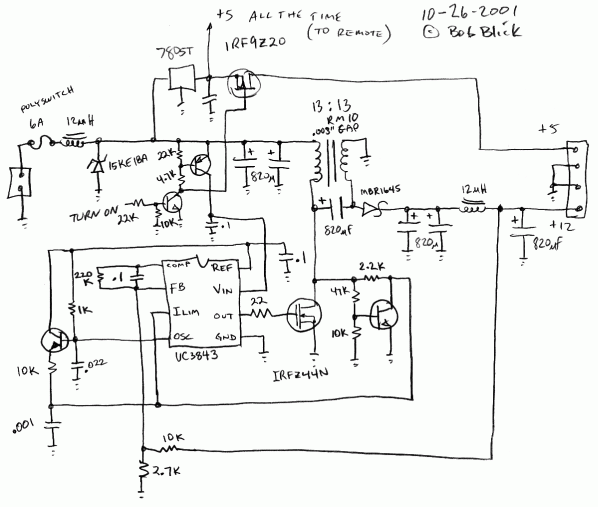 +5 ALL THE TIME
(TO REMOTE)
10-26-2001
© Bob Blick
7805T
IRF9Z20
POLYSWITCH
6A
12µH
13:13
RM10
.003" GAP
+5
15KE18A
22K
4.7K
+
+
820µ
MBR1645
12µH
TURN ON
22K
10K
.1
+
820µF
+
+
820µ
+
820µF
+12
.1
220
K
.1
COMP
REF
FB
VIN
ILIM
OUT
OSC
GND
UC3843
22
2.2K
47K
10K
1K
.022
10K
IRFZ44N
.001
10K
2.7K